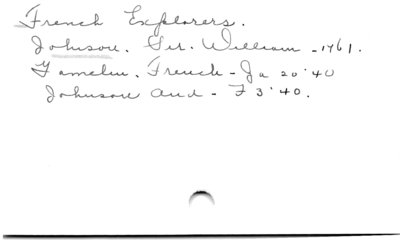 French Explorers.
Johnson. Sir. William - 1761.
Gamelin. French - Ja 20 '40
Johnson and - F 3 '40.